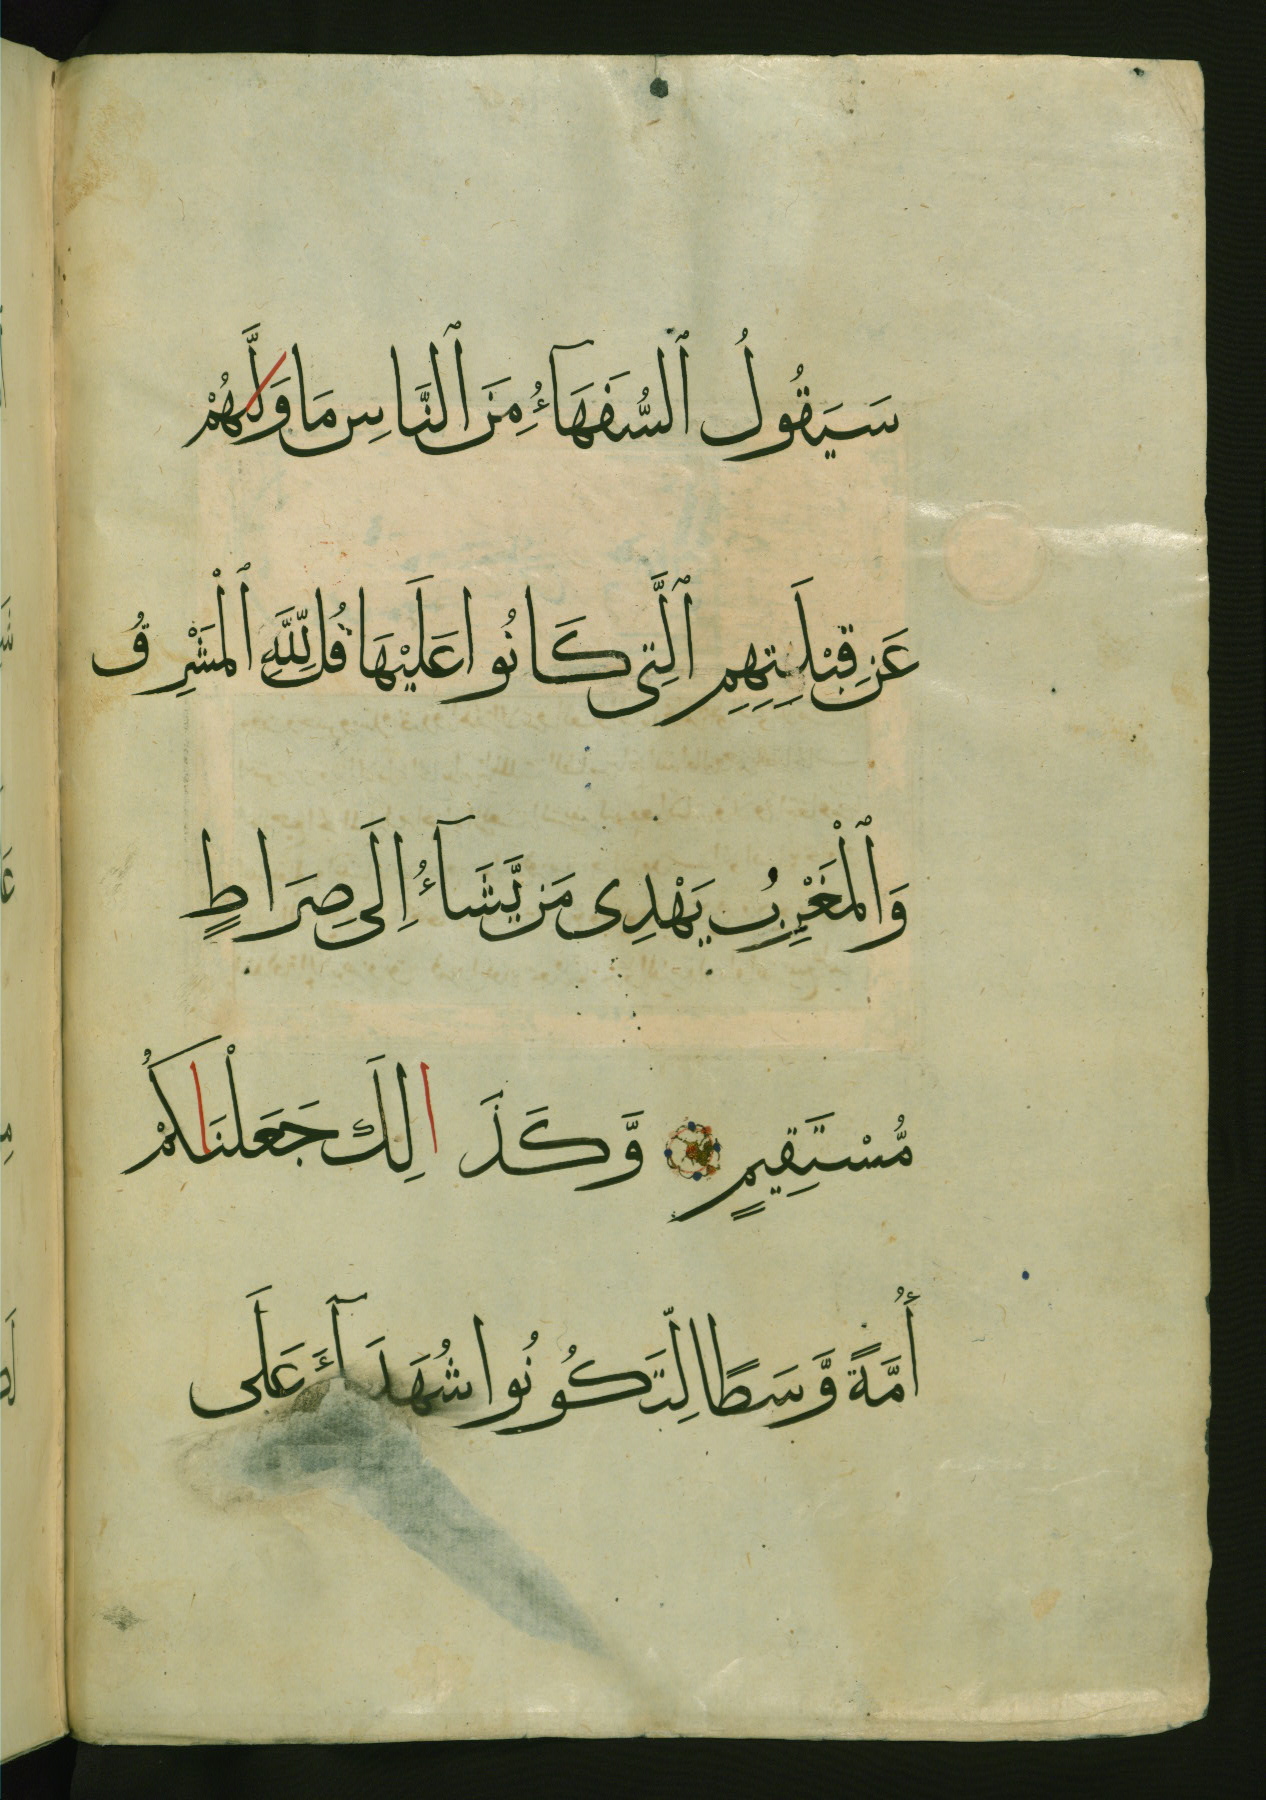 سَيَقُولُ ٱلسُّفَهَآءُ مِنَ ٱلنَّاسِ مَا وَلَّىٰهُمْ
عَن قِبْلَتِهِمِ ٱلَّتِى كَانُوا عَلَيْهَا قُل لِّلَّهِ ٱلْمَشْرِقُ
وَٱلْمَغْرِبُ يَهْدِى مَن يَّشَآءُ اِلَى صِرَاطٍ
مُّسْتَقِيمٍ وَّكَذَالِكَ جَعَلْنَاكُمْ
أُمَّةً وَّسَطًا لِّتَكُونُوا شُهَدَآءَ عَلَى